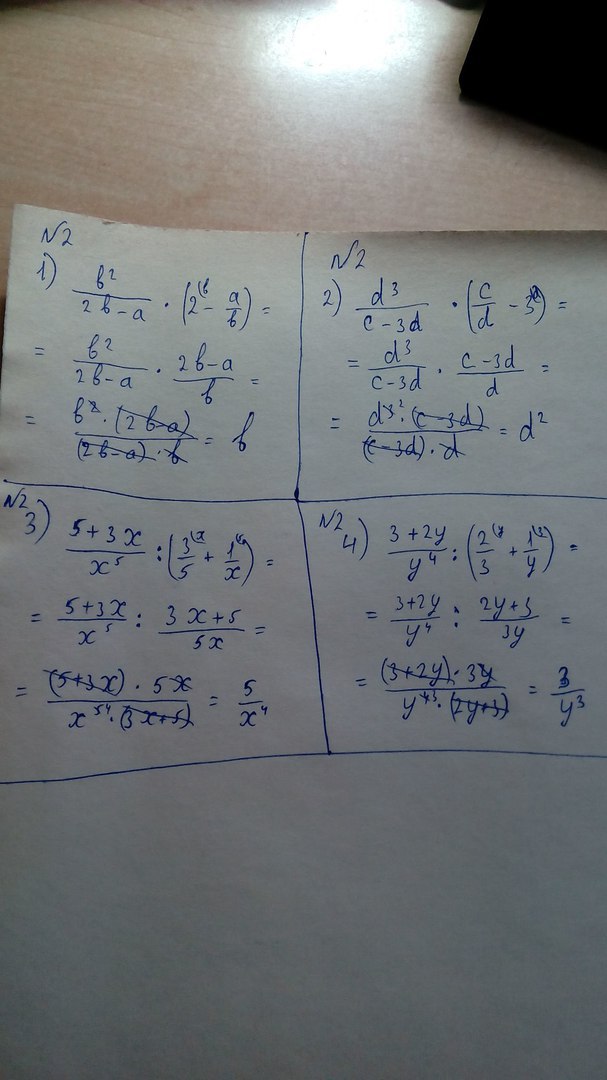 N2
1) b²/(2b-a) · (2^(b - a/b) =
= b²/(2b-a) · (2b-a)/b =
= b² · (2b-a)/((2b-a) · b) = b
N2
2) d³/(c-3d) · (c/d - 3^(d) =
= d³/(c-3d) · (c-3d)/d =
= d³² · (c-3d)/((c-3d) · d) = d²
N2
3) (5+3x)/x⁵ : (3/5^(x + 1/x^(5) =
= (5+3x)/x⁵ : (3x+5)/5x =
= (5+3x) · 5x/(x⁵⁴ · (3x+5)) = 5/x⁴
N2
4) (3+2y)/y⁴ : (2/3^(y + 1/y^(3) =
= (3+2y)/y⁴ : (2y+3)/3y =
= (3+2y) · 3y/(y⁴³ · (2y+3)) = 3/y³